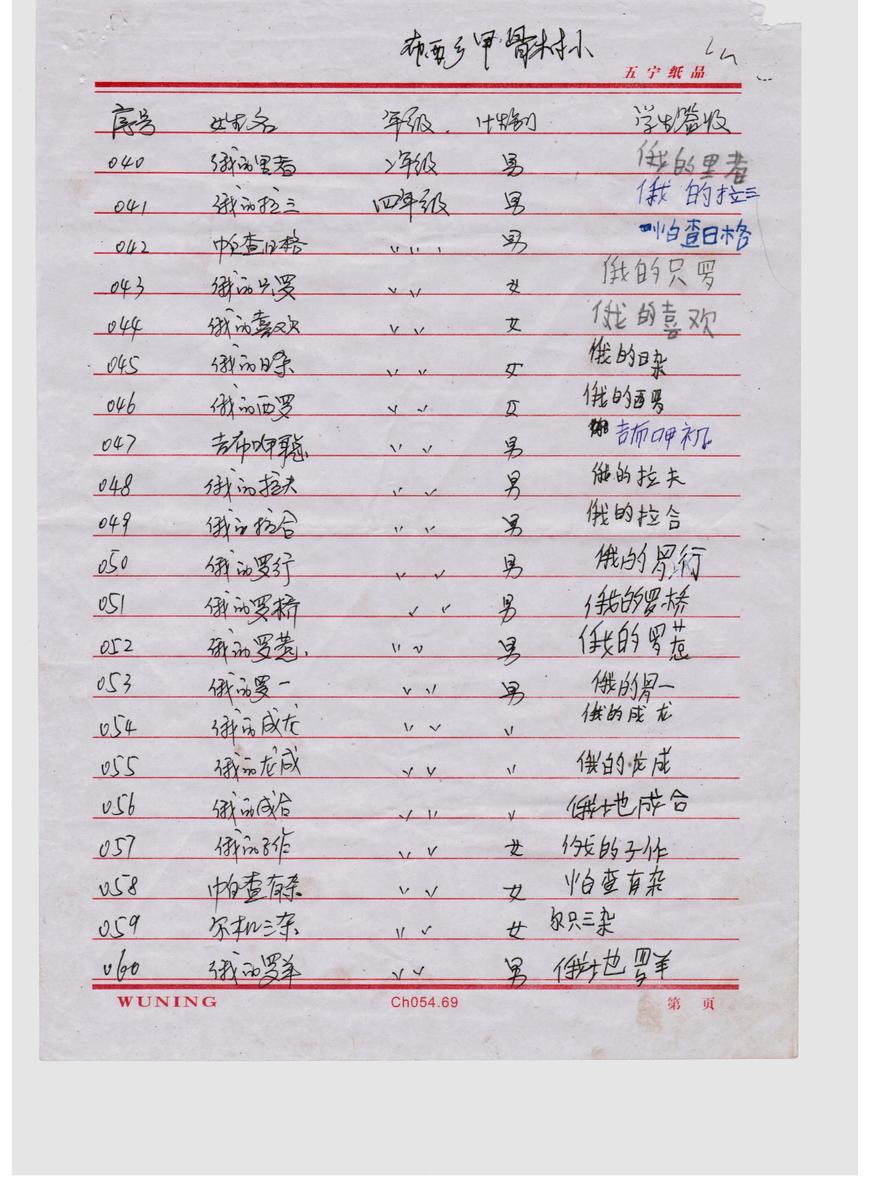 布西乡甲骨村小
五宁纸品
序号 姓名 年级 性别 学生签收
040 俄的里者 2年级 男 俄的里者
041 俄的拉三 四年级 男 俄的拉三
042 帕查日格 〃 〃 男 怕查日格
043 俄的只罗 〃 女 俄的只罗
044 俄的喜欢 〃 女 俄的喜欢
045 俄的日杂 〃 女 俄的日杂
046 俄的西罗 〃 女 俄的西罗
047 吉布呷聪 〃 男 吉布呷
048 俄的拉夫 〃 男 俄的拉夫
049 俄的拉合 〃 男 俄的拉合
050 俄的罗行 〃 男 俄的罗行
051 俄的罗桥 〃 男 俄的罗桥
052 俄的罗惹 〃 男 俄的罗惹
053 俄的罗一 〃 男 俄的罗一
054 俄的成龙 〃 〃 俄的成龙
055 俄的龙成 〃 〃 俄的龙成
056 俄的成合 〃 〃 俄地成合
057 俄的子作 〃 女 俄的子作
058 帕查有杂 〃 女 怕查有杂
059 尔机三杂 〃 女 尔只三杂
060 俄的罗羊 〃 男 俄地罗羊
WUNING Ch054.69 第 页